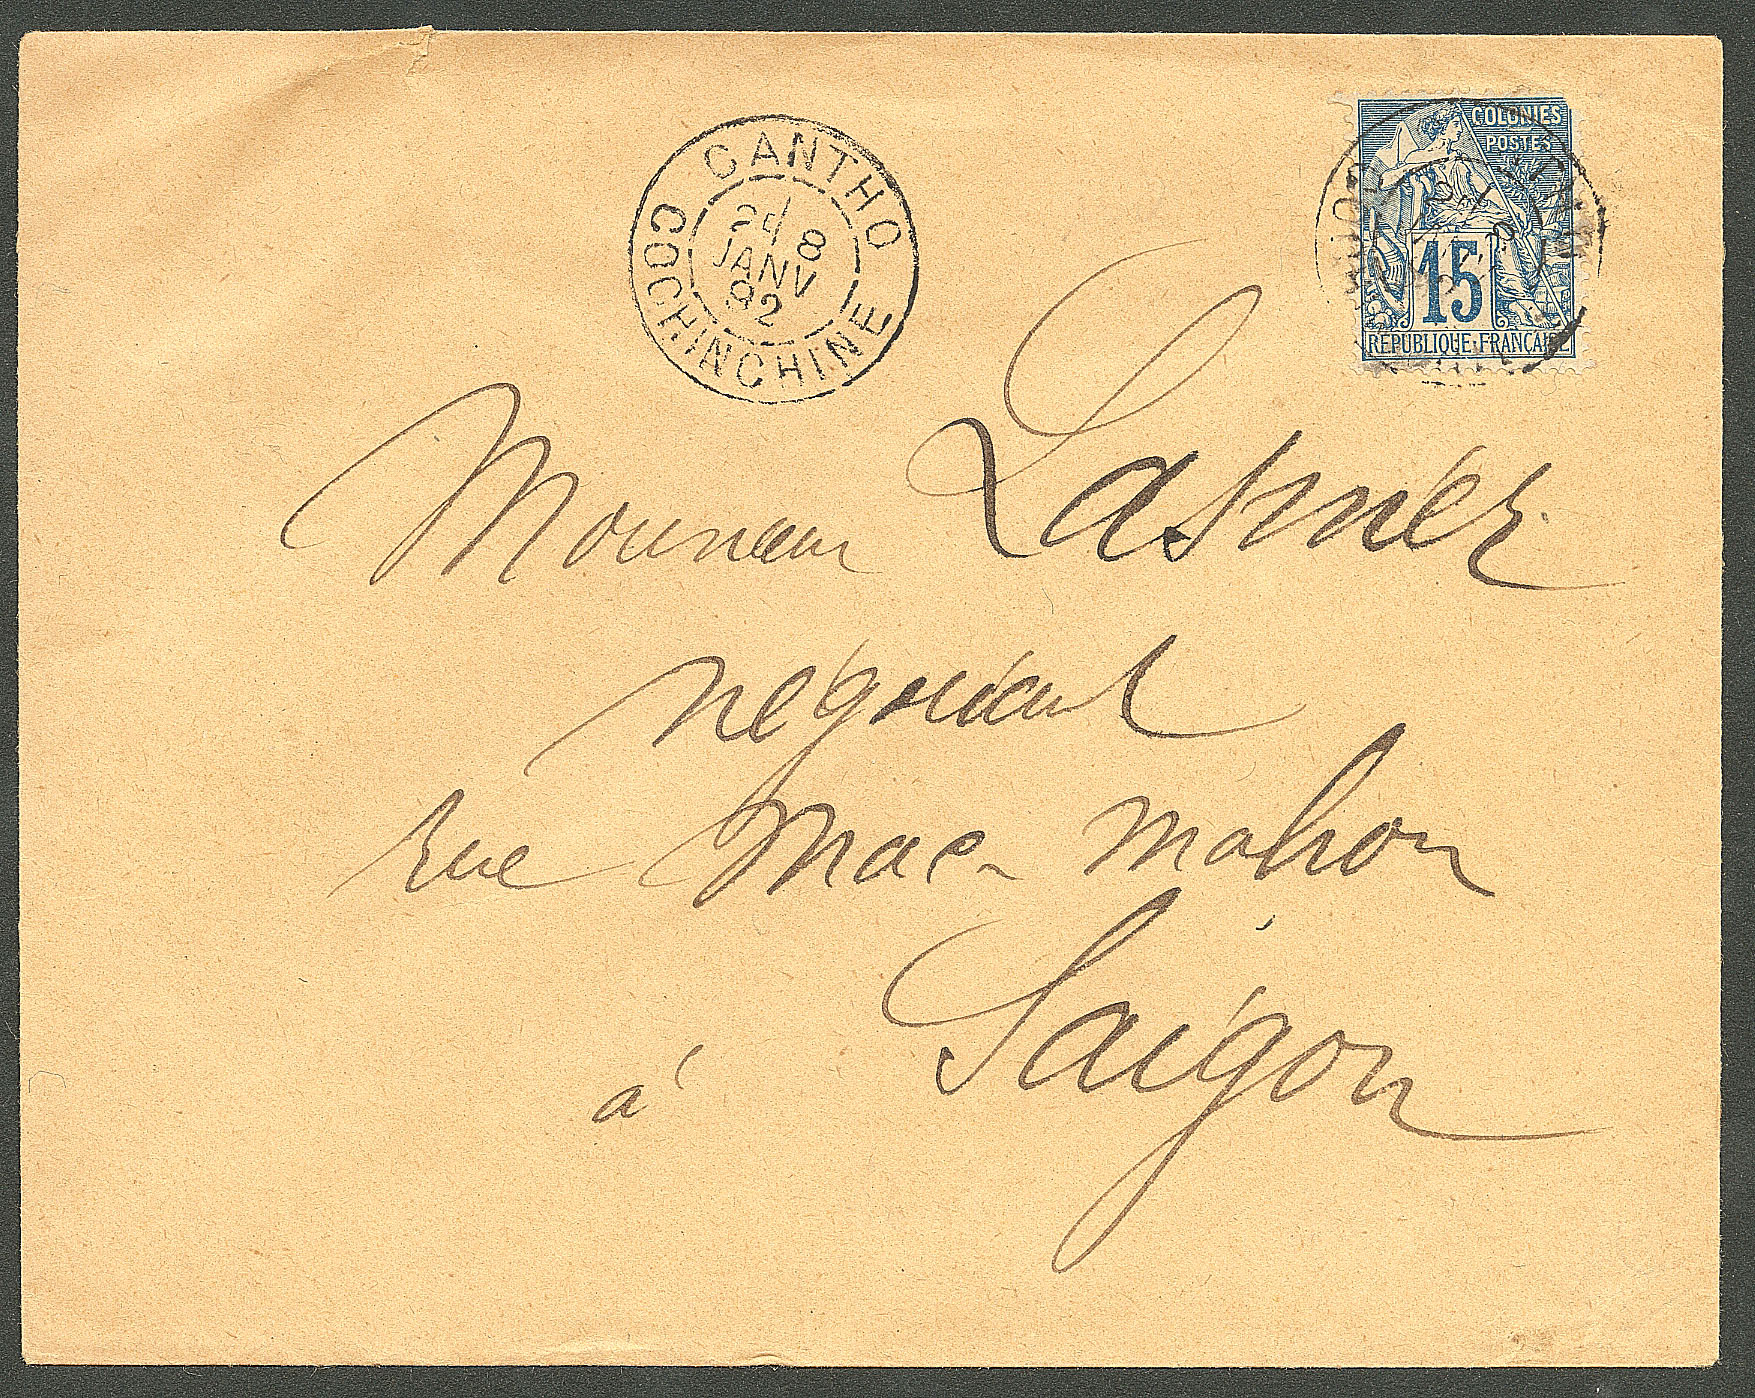 CANTHO
2E 8
JANV
92
COCHINCHINE
COLONIES
POSTES
15
RÉPUBLIQUE FRANÇAISE
Monsieur Lasnier
négociant
rue Mac-Mahon
à Saïgon